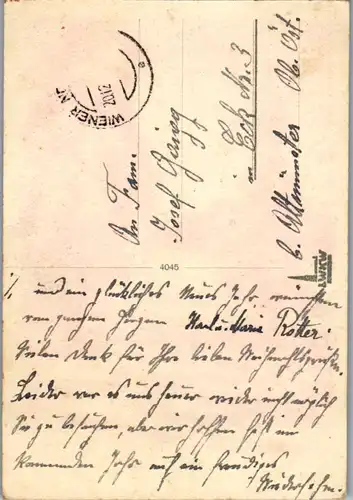 WIENER
20.12
An Fam.
Josef
in Eck Nr. 3
b. Ob. Öst.
4045
WKW
und ein glückliches Neues Jahr wünschen
von ganzem Herzen Maria Rotter.
Vielen Dank für Ihre lieben Weihnachtsgrüße.
Leider war es uns heuer wieder nicht möglich
Sie zu besuchen, aber wir hoffen fest im
kommenden Jahr auf ein freudiges
Wiedersehen.